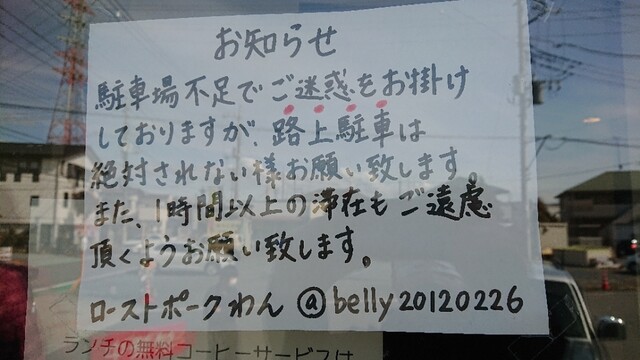 お知らせ
駐車場不足でご迷惑をお掛け
しておりますが、路上駐車は
絶対されない様お願い致します。
また、1時間以上の滞在もご遠慮
頂くようお願い致します。
ローストポークわん @belly20120226
ランチの無料コーヒーサービスは